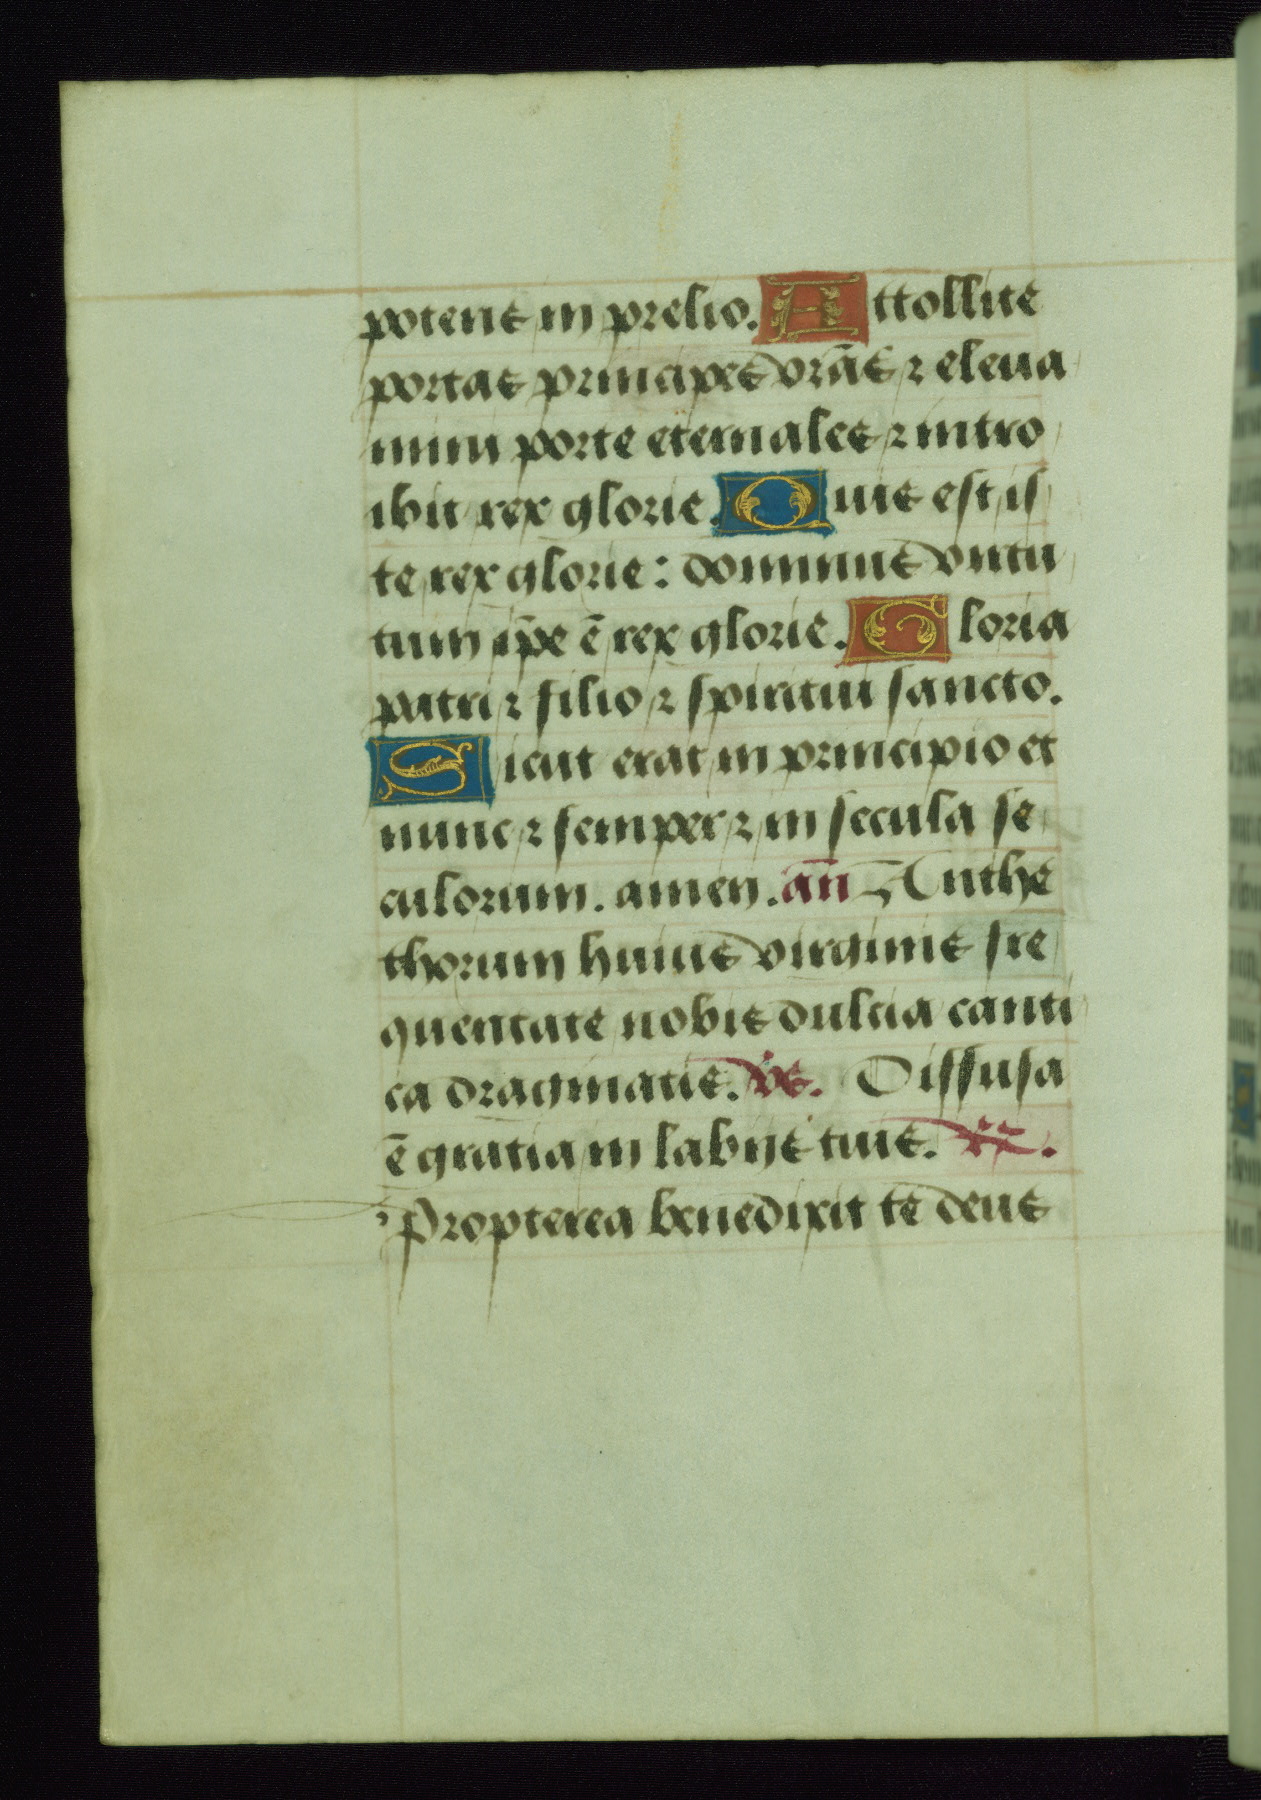 potens in prelio. Attollite
portas principes vr̄as ⁊ eleua
mini porte eternales ⁊ intro
ibit rex glorie. Quis est is
te rex glorie: dominus virtu
tum ip̄e ē rex glorie. Gloria
patri ⁊ filio ⁊ spiritui sancto.
Sicut erat in principio et
nunc ⁊ semper ⁊ in secula se
culorum. amen. an̄ Ante
thorum huius virginis fre
quentate nobis dulcia canti
ca dragmatis. v̇s. Diffusa
ē gratia in labijs tuis. ṙꝛ.
Propterea benedixit te deus